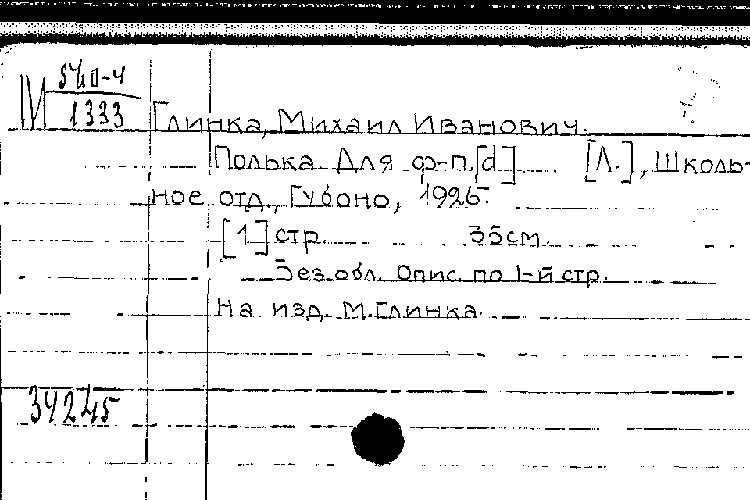 М 540-4
1333
Глинка, Михаил Иванович.
Полька. Для ф-п. [d] [Л.], Школь-
ное отд., Губоно, 1926.
[1] стр. 35см.
Без обл. Опис. по 1-й стр.
На изд. М. Глинка.
34245